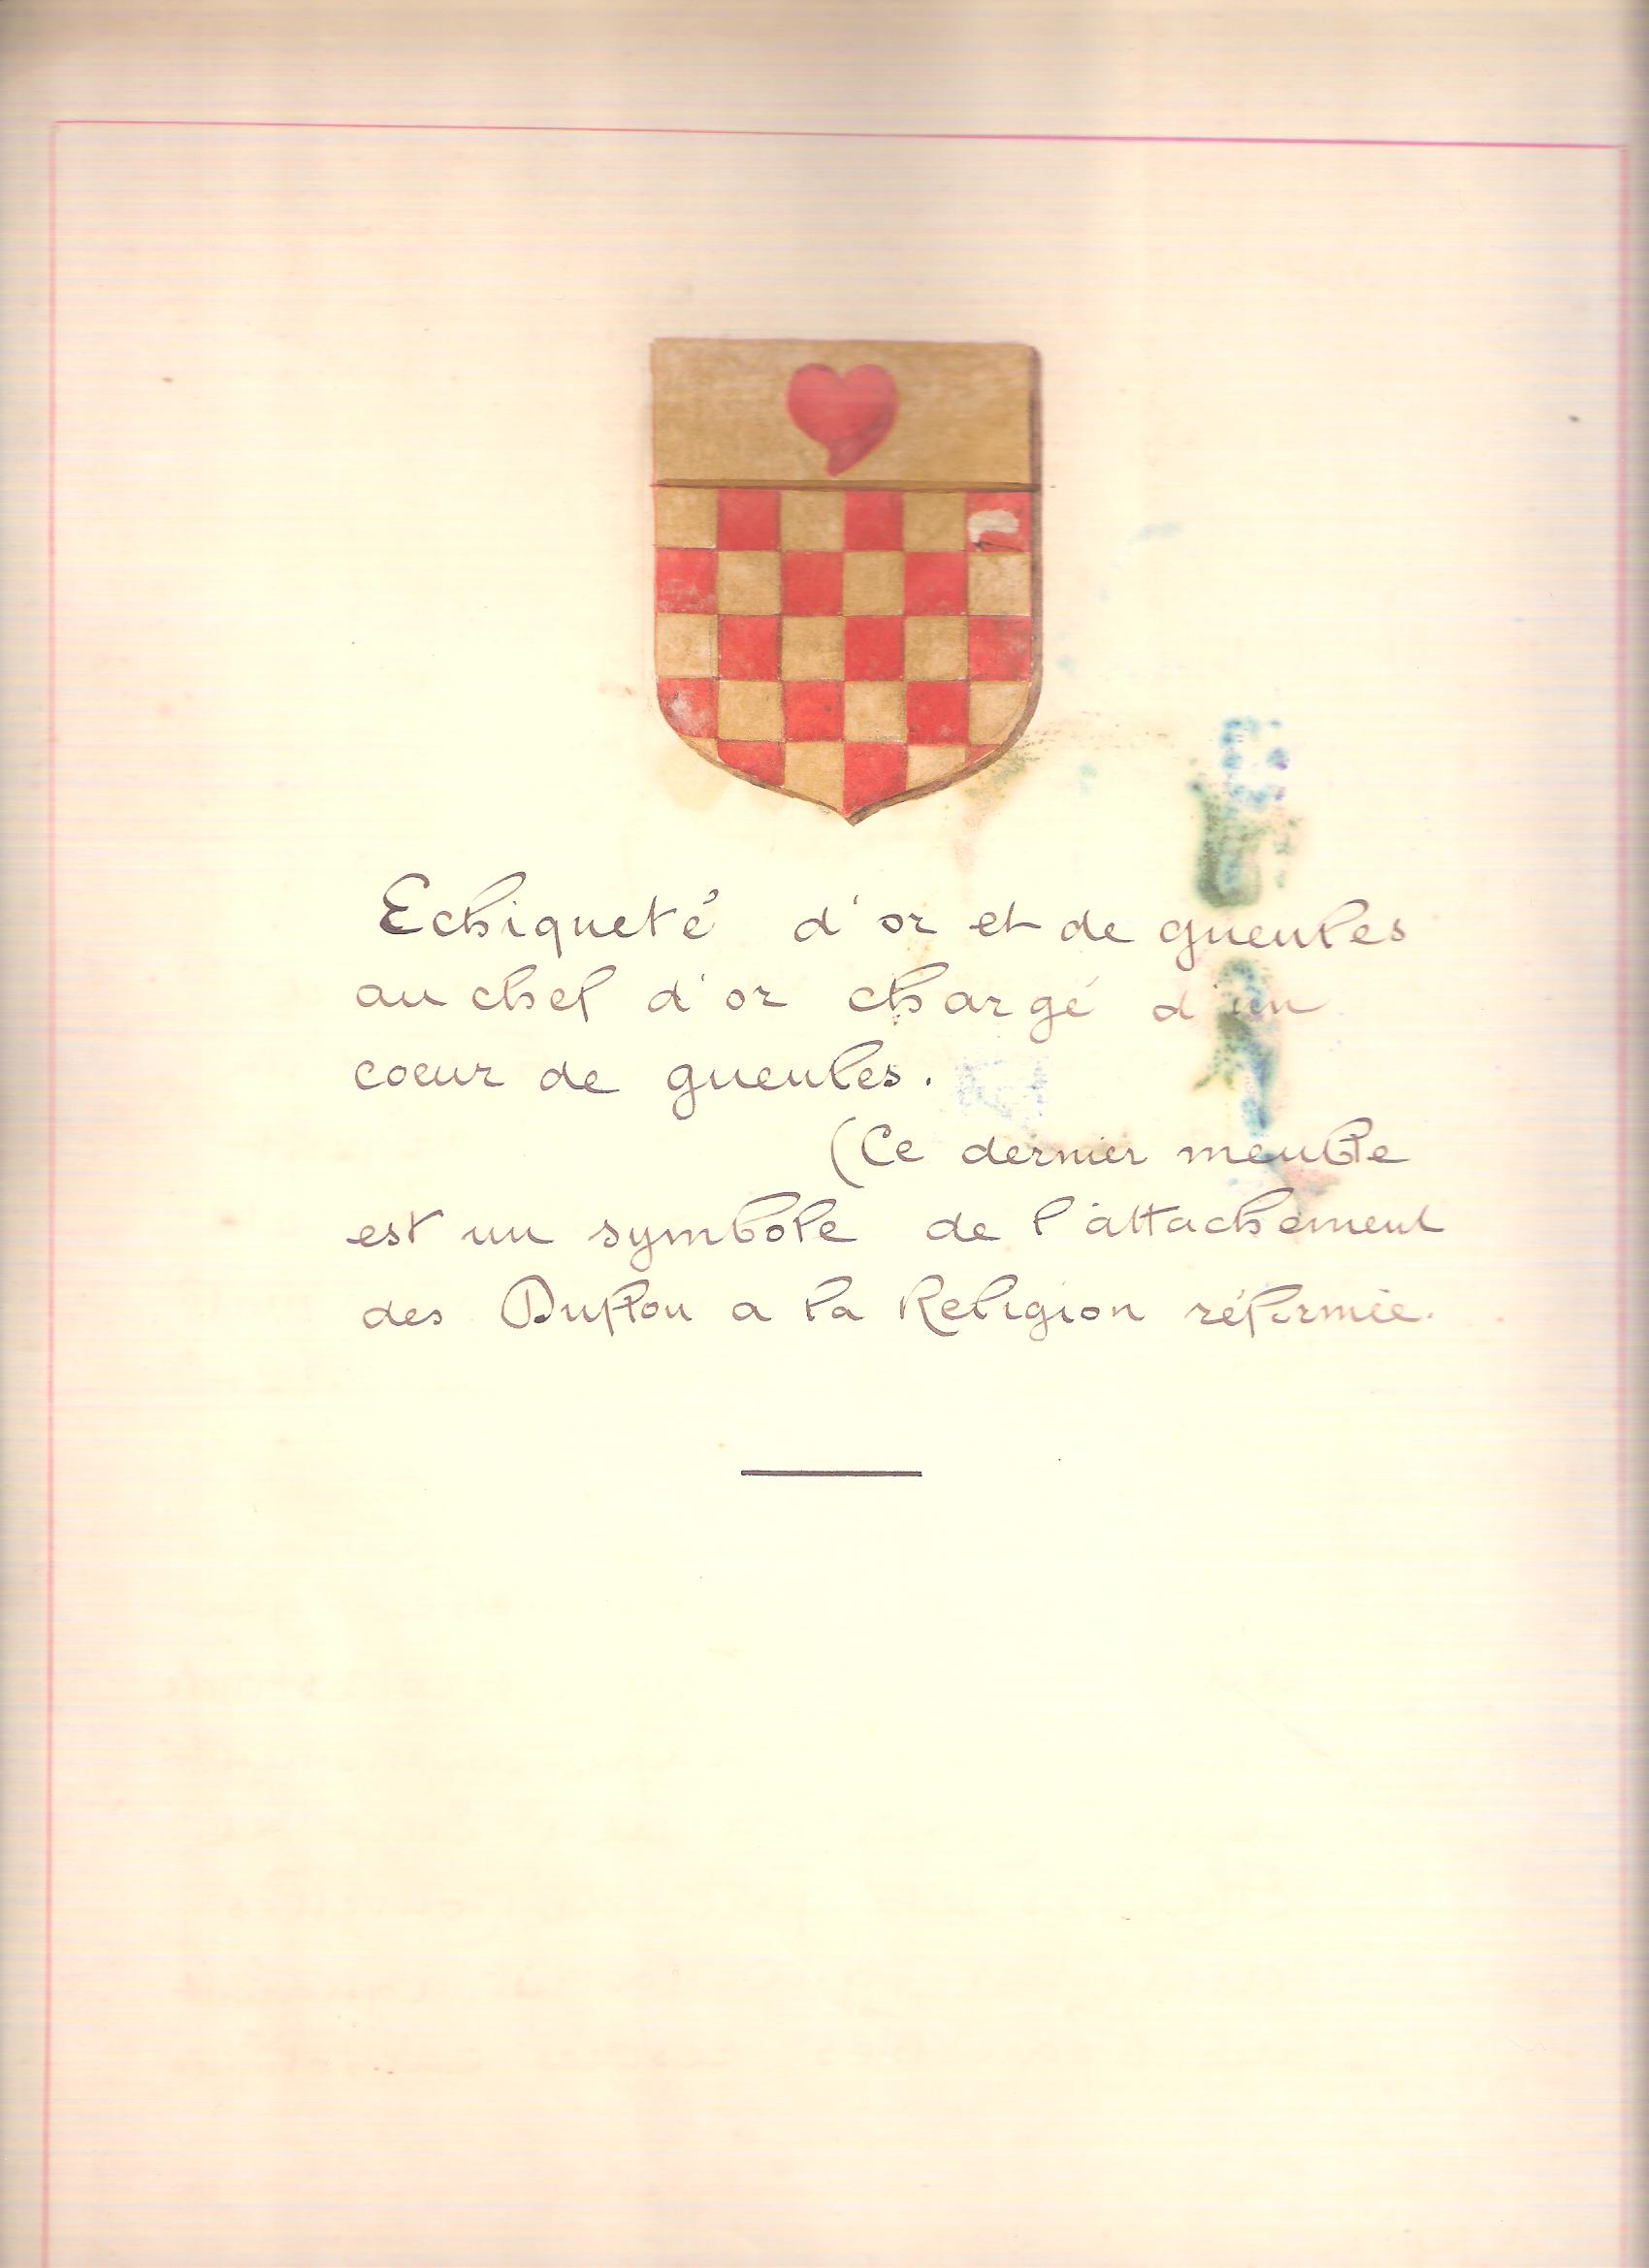 Echiqueté d'or et de gueules
au chef d'or chargé d'un
coeur de gueules.
(Ce dernier meuble
est un symbole de l'attachement
des Duflou a la Religion réformée.